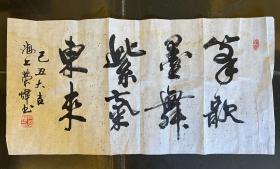 筆歌
墨舞
紫氣
東來
己丑大吉
海上榮書